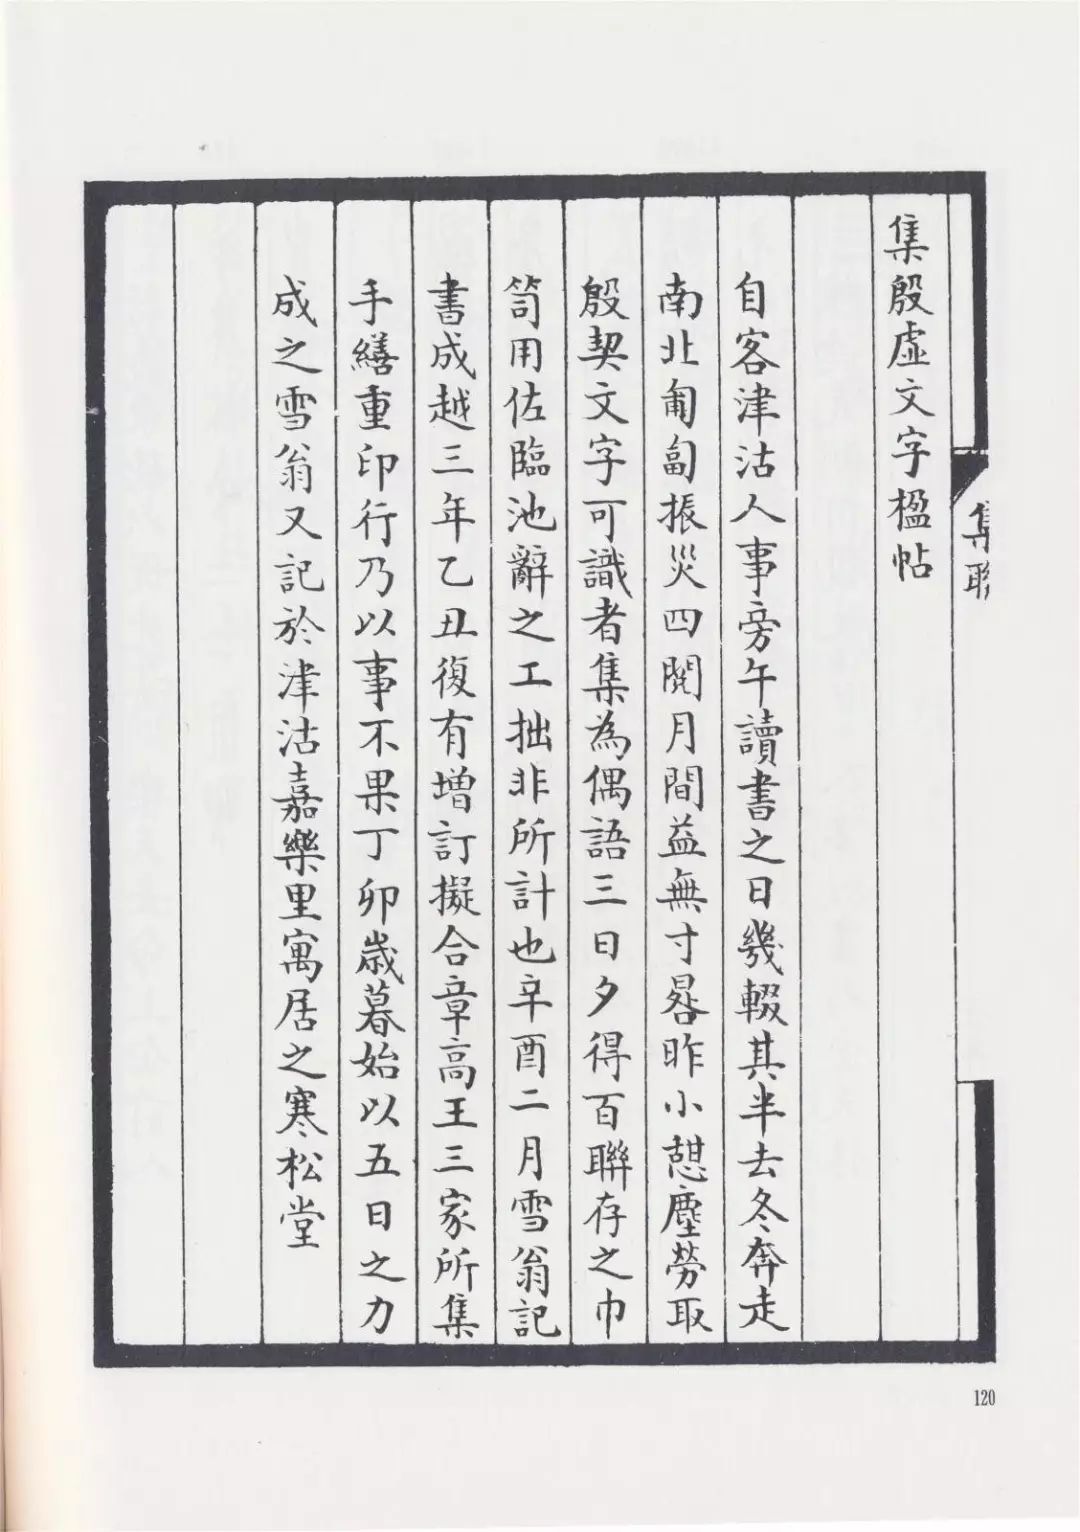 集聯
集殷虛文字楹帖
自客津沽人事旁午讀書之日幾輟其半去冬奔走
南北匍匐振災四閱月間益無寸晷昨小憇塵勞取
殷契文字可識者集為偶語三日夕得百聯存之巾
笥用佐臨池辭之工拙非所計也辛酉二月雪翁記
書成越三年乙丑復有增訂擬合章高王三家所集
手繕重印行乃以事不果丁卯歲暮始以五日之力
成之雪翁又記於津沽嘉樂里寓居之寒松堂
120